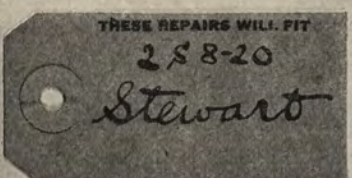 THESE REPAIRS WILL FIT
2 S 8-20
Stewart